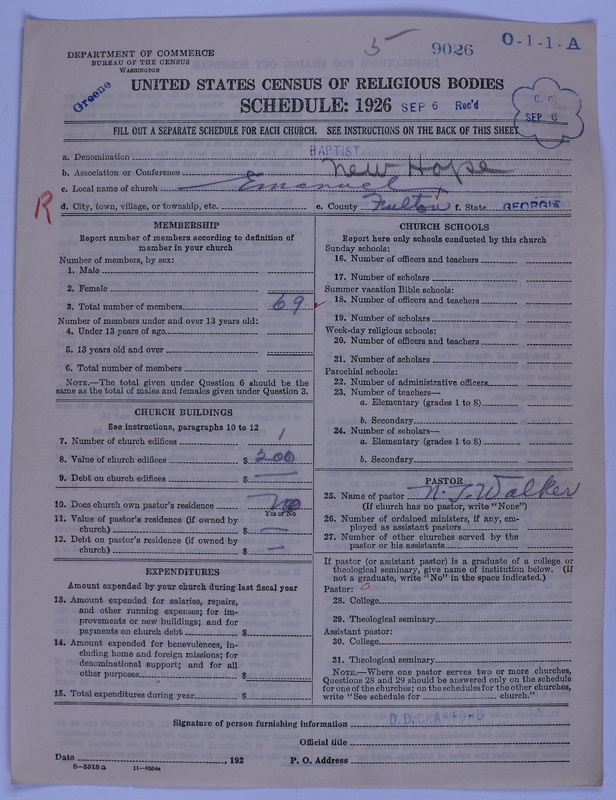 5 9026 O-1-1-A
DEPARTMENT OF COMMERCE
BUREAU OF THE CENSUS
WASHINGTON
Greene
UNITED STATES CENSUS OF RELIGIOUS BODIES
SCHEDULE: 1926 SEP 6 Rec'd
SEP 6
FILL OUT A SEPARATE SCHEDULE FOR EACH CHURCH. SEE INSTRUCTIONS ON THE BACK OF THIS SHEET
a. Denomination BAPTIST
b. Association or Conference New Hope
c. Local name of church Emanuel
R
d. City, town, village, or township, etc. e. County Fulton f. State GEORGIA
MEMBERSHIP
Report number of members according to definition of
member in your church
Number of members, by sex:
1. Male
2. Female
3. Total number of members 69
Number of members under and over 13 years old:
4. Under 13 years of age
5. 13 years old and over
6. Total number of members
NOTE.—The total given under Question 6 should be the
same as the total of males and females given under Question 3.
CHURCH BUILDINGS
See instructions, paragraphs 10 to 12
7. Number of church edifices 1
8. Value of church edifices $ 200
9. Debt on church edifices $ —
10. Does church own pastor's residence No
Yes or No
11. Value of pastor's residence (if owned by
church) $ —
12. Debt on pastor's residence (if owned by
church) $ —
EXPENDITURES
Amount expended by your church during last fiscal year
13. Amount expended for salaries, repairs,
and other running expenses; for im-
provements or new buildings; and for
payments on church debt $
14. Amount expended for benevolences, in-
cluding home and foreign missions; for
denominational support; and for all
other purposes $
15. Total expenditures during year $
CHURCH SCHOOLS
Report here only schools conducted by this church
Sunday schools:
16. Number of officers and teachers
17. Number of scholars
Summer vacation Bible schools:
18. Number of officers and teachers
19. Number of scholars
Week-day religious schools:
20. Number of officers and teachers
21. Number of scholars
Parochial schools:
22. Number of administrative officers
23. Number of teachers—
a. Elementary (grades 1 to 8)
b. Secondary
24. Number of scholars—
a. Elementary (grades 1 to 8)
b. Secondary
PASTOR
25. Name of pastor N. J. Walker
(If church has no pastor, write "None")
26. Number of ordained ministers, if any, em-
ployed as assistant pastors
27. Number of other churches served by the
pastor or his assistants
If pastor (or assistant pastor) is a graduate of a college or
theological seminary, give name of institution below. (If
not a graduate, write "No" in the space indicated.)
Pastor: 0
28. College
29. Theological seminary
Assistant pastor:
30. College
31. Theological seminary
NOTE.—Where one pastor serves two or more churches,
Questions 28 and 29 should be answered only on the schedule
for one of the churches; on the schedules for the other churches,
write "See schedule for church."
Signature of person furnishing information D. D. CRAWFORD
Official title
Date , 192 P. O. Address
8—5518a 11—9554a